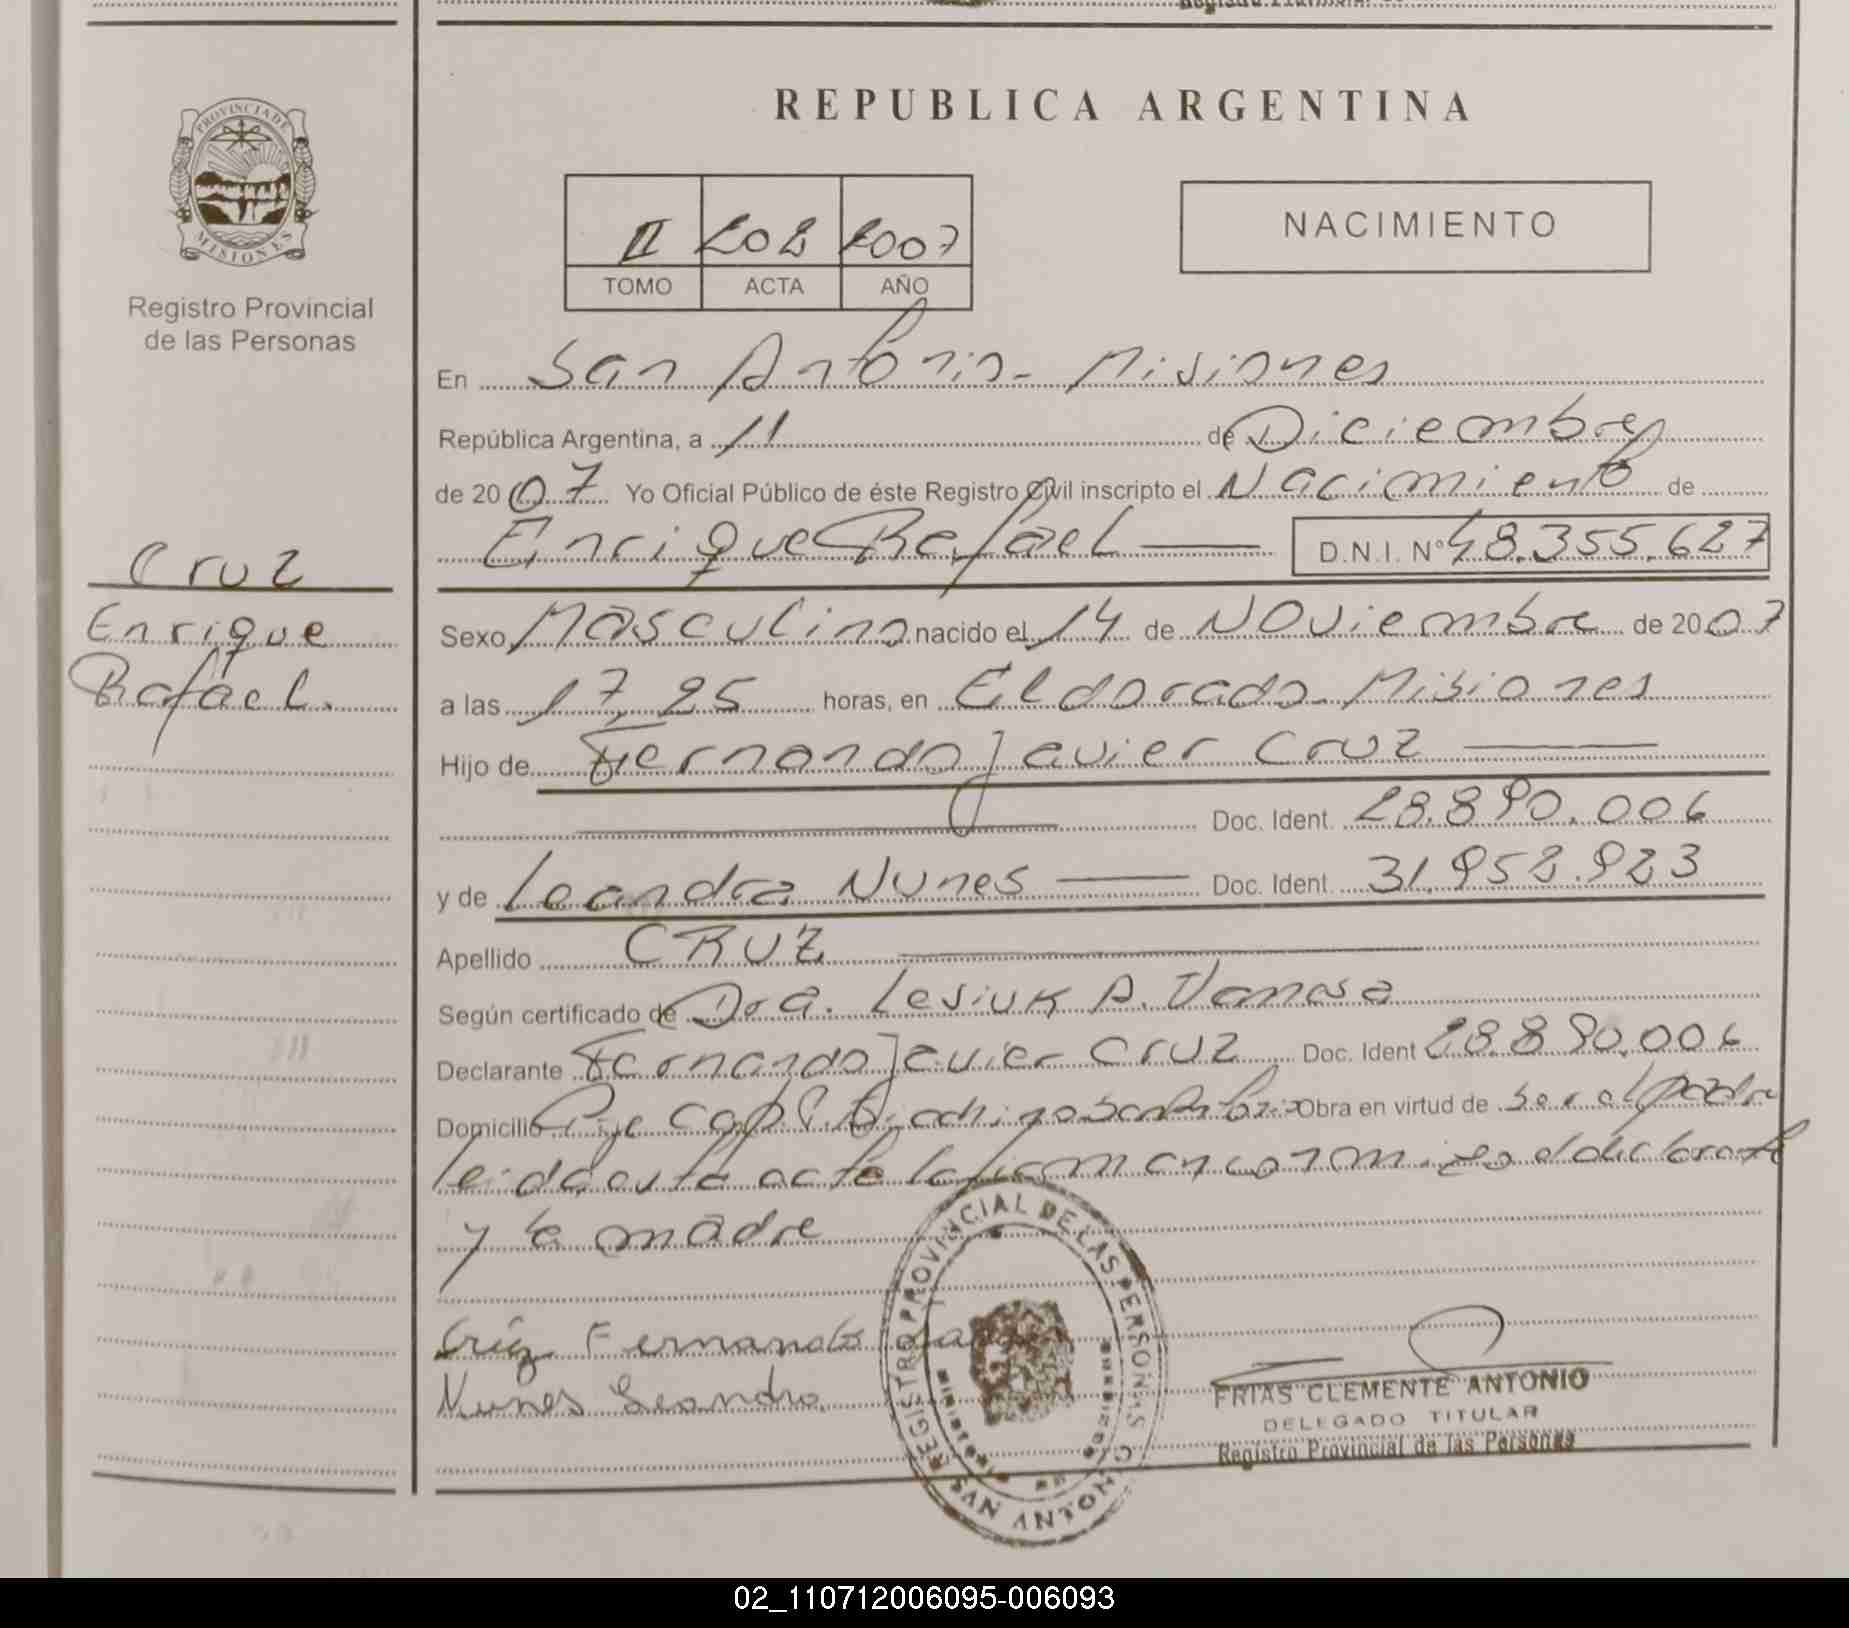 REPUBLICA ARGENTINA
PROVINCIA DE MISIONES
Registro Provincial
de las Personas
II 202 2007
TOMO ACTA AÑO
NACIMIENTO
En San Antonio - Misiones
República Argentina, a 11 de Diciembre
de 2007 Yo Oficial Público de éste Registro Civil inscripto el Nacimiento de
Enrique Rafael D.N.I. Nº 48.355.627
Cruz
Enrique
Rafael.
Sexo Masculino nacido el 14 de Noviembre de 2007
a las 17,25 horas, en Eldorado - Misiones
Hijo de Fernando Javier Cruz
Doc. Ident. 28.890.006
y de Leandra Nunes Doc. Ident. 31.952.923
Apellido CRUZ
Según certificado de Dra. Lesiuk A. Vanesa
Declarante Fernando Javier Cruz Doc. Ident 28.890.006
Domicilio Obra en virtud de ser el padre
leida esta acta la firman conmigo el declarante
y la madre
Cruz Fernando
Nunes Leandra
REGISTRO PROVINCIAL DE LAS PERSONAS
SAN ANTONIO
FRIAS CLEMENTE ANTONIO
DELEGADO TITULAR
Registro Provincial de las Personas
02_110712006095-006093